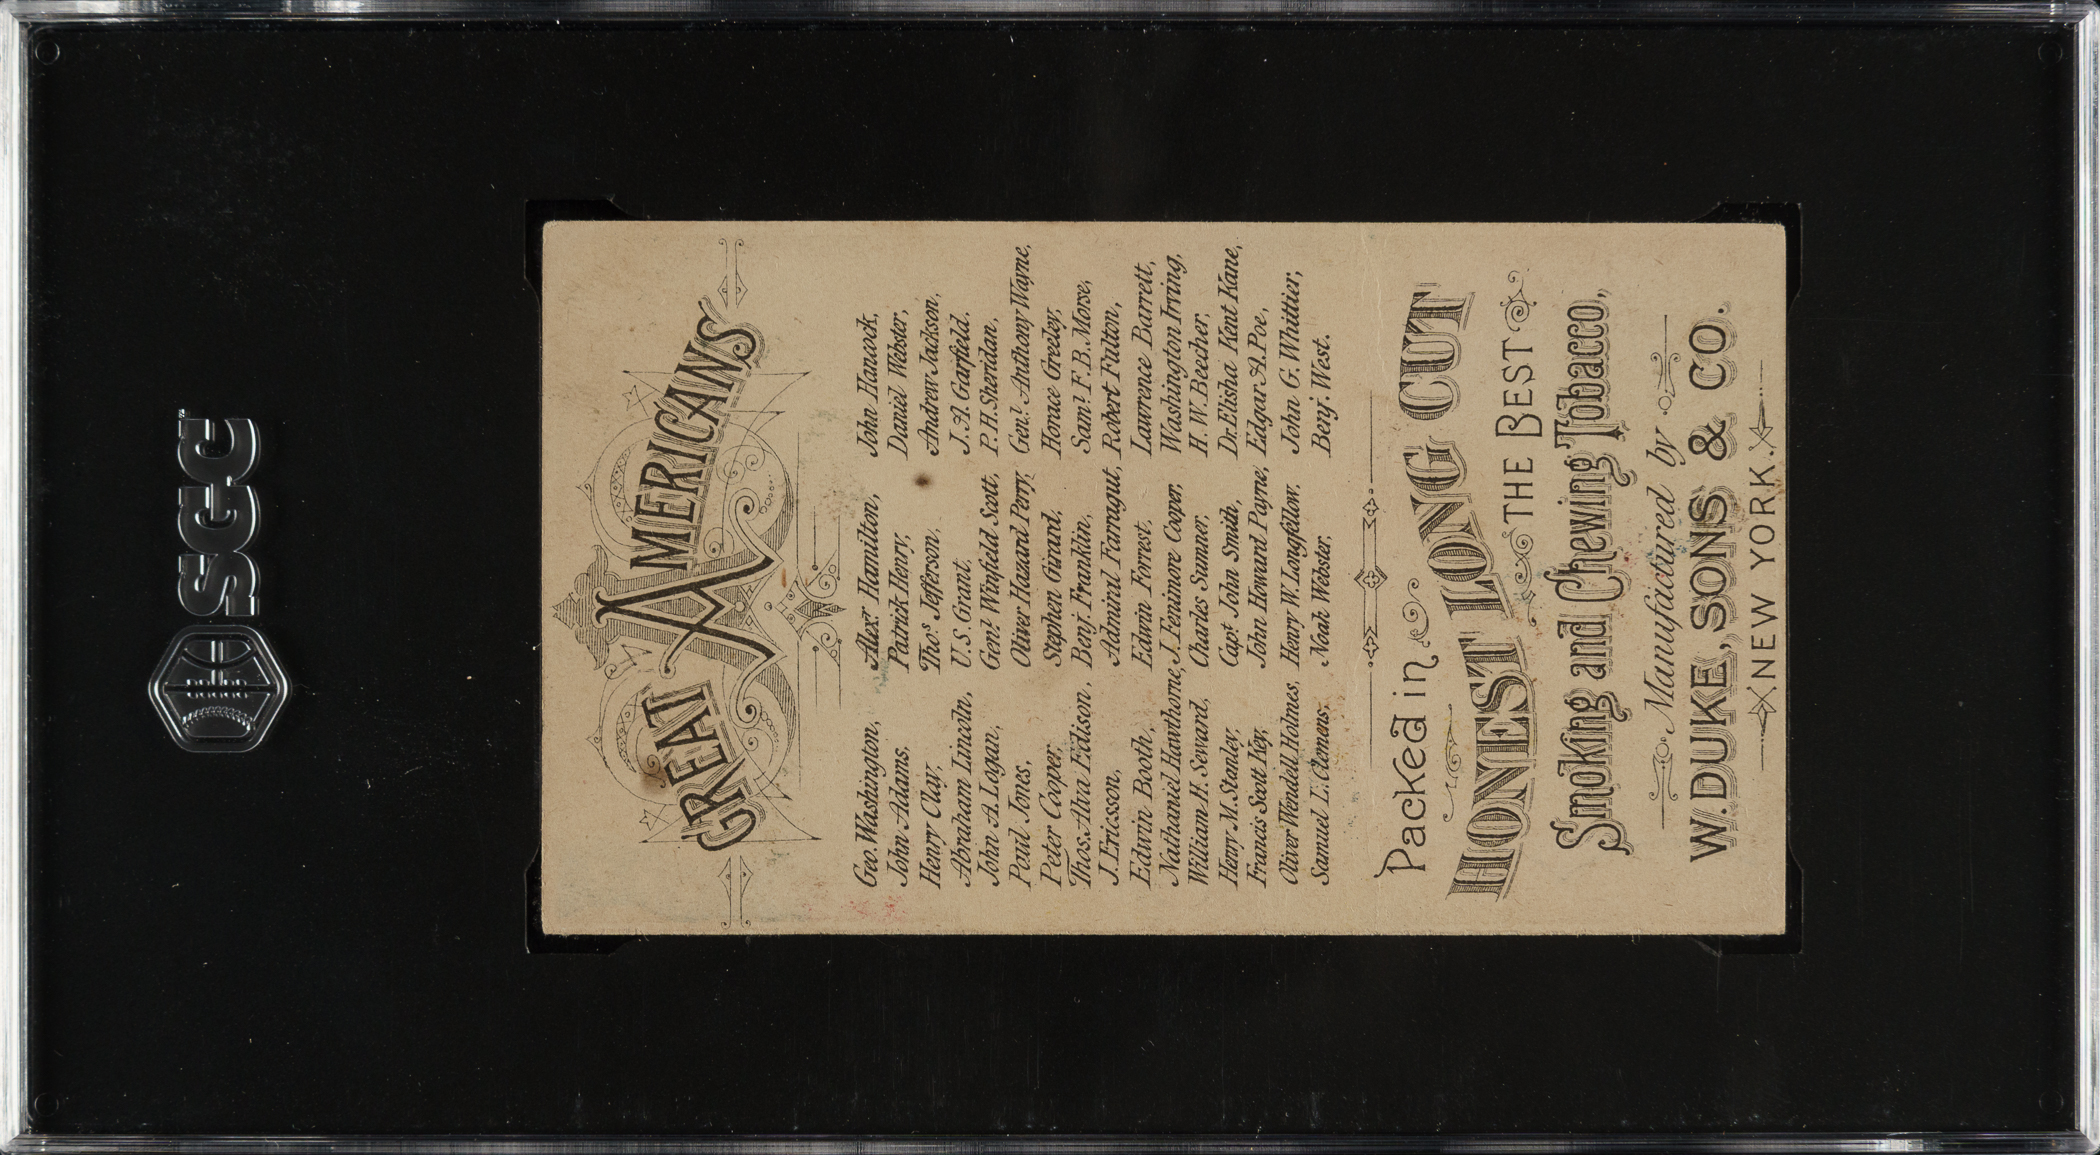 SGC
GREAT AMERICANS
Geo. Washington, Alexr. Hamilton, John Hancock,
John Adams, Patrick Henry, Daniel Webster,
Henry Clay, Thos. Jefferson, Andrew Jackson,
Abraham Lincoln, U.S. Grant, J. A. Garfield.
John A. Logan, Genl. Winfield Scott, P. H. Sheridan,
Paul Jones, Oliver Hazard Perry, Genl. Anthony Wayne,
Peter Cooper, Stephen Girard, Horace Greeley,
Thos. Alva Edison, Benj. Franklin, Saml. F. B. Morse,
J. Ericsson, Admiral Farragut, Robert Fulton,
Edwin Booth, Edwin Forrest, Lawrence Barrett,
Nathaniel Hawthorne, J. Fenimore Cooper, Washington Irving,
William H. Seward, Charles Sumner, H. W. Beecher,
Henry M. Stanley, Capt. John Smith, Dr. Elisha Kent Kane,
Francis Scott Key, John Howard Payne, Edgar A. Poe,
Oliver Wendell Holmes, Henry W. Longfellow, John G. Whittier,
Samuel L. Clemens, Noah Webster, Benj. West.
Packed in
HONEST LONG CUT
THE BEST
Smoking and Chewing Tobacco,
Manufactured by
W. DUKE, SONS & CO.
NEW YORK.